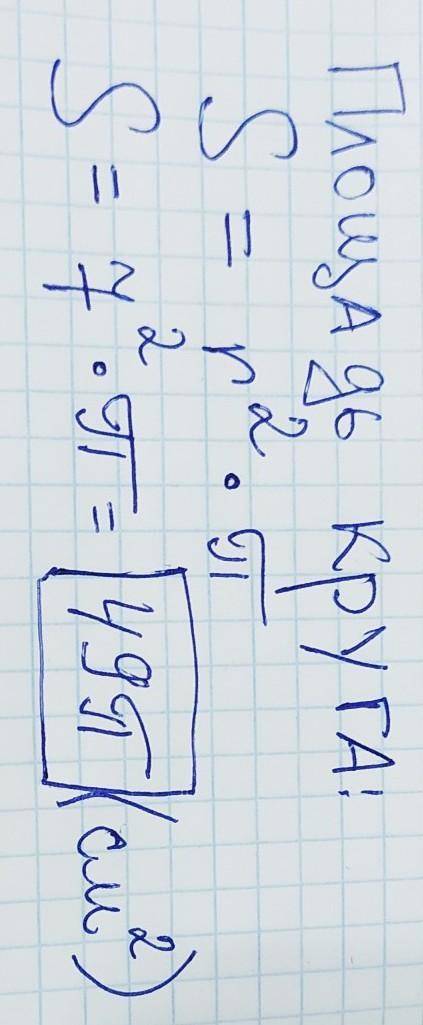 Площадь круга:
S = r² · π
S = 7² · π = 49π (см²)